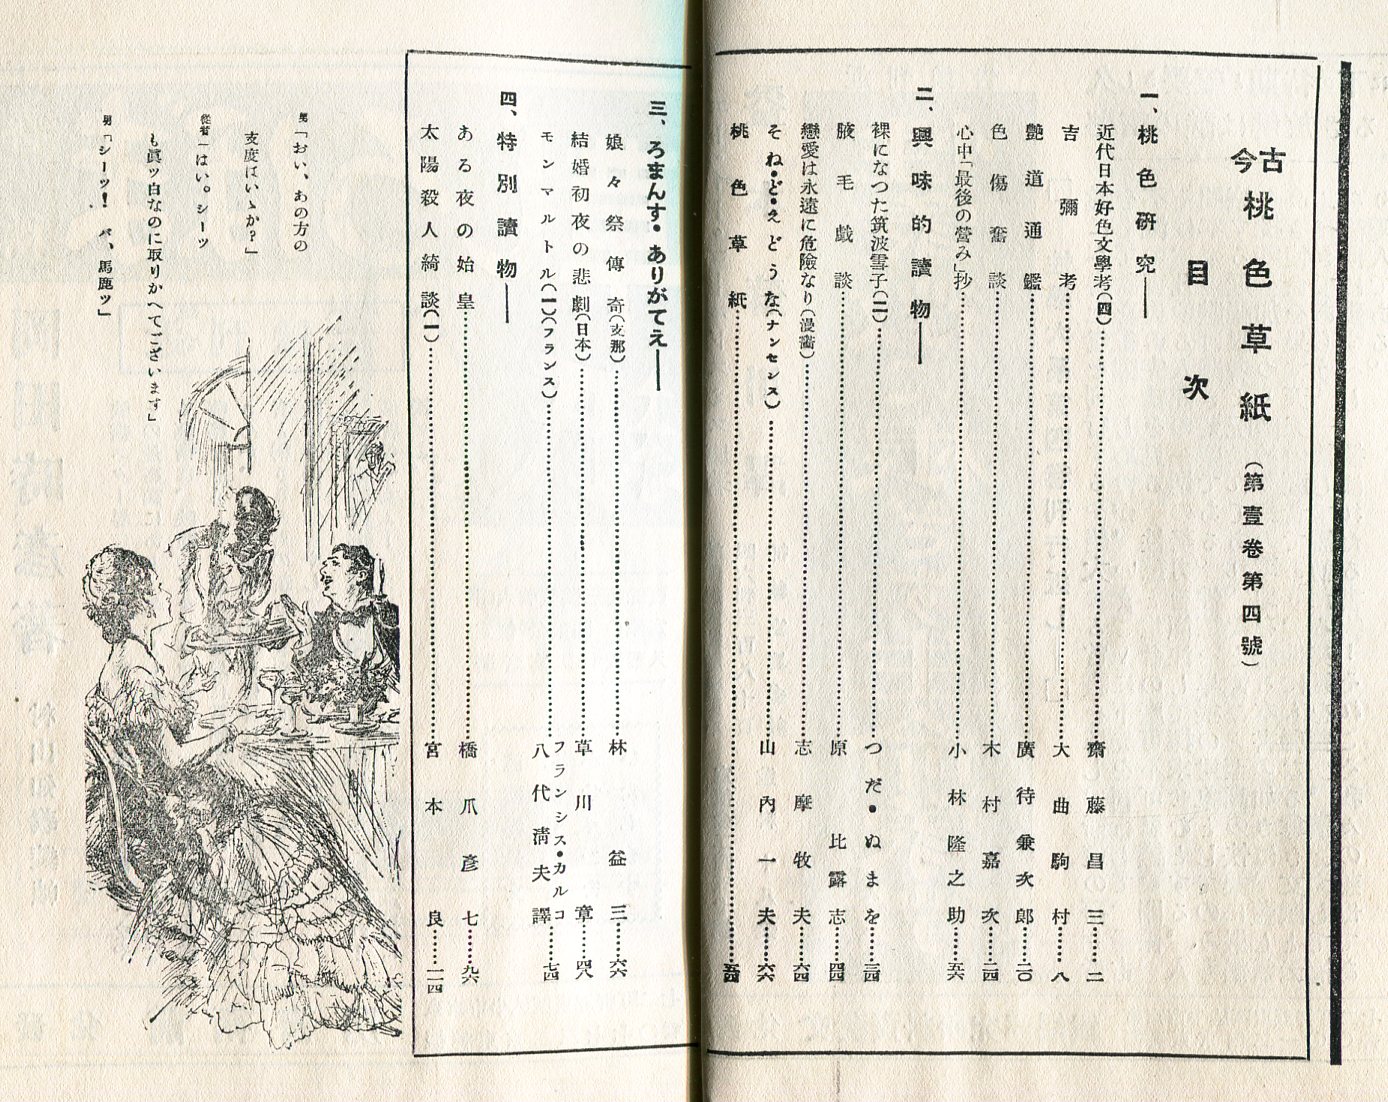 古今桃色草紙（第壹卷第四號）
目次
一、桃色研究――
近代日本好色文學考（四）……齋藤昌三……二
吉彌考……大曲駒村……八
艷道通鑑……廣待兼次郎……二〇
色傷奮談……木村嘉次……二四
心中「最後の營み」抄……小林隆之助……五六
二、興味的讀物――
裸になつた筑波雪子（二）……つだ・ぬまを……三四
腋毛戲談……原比露志……四四
戀愛は永遠に危險なり（漫畵）……志摩牧夫……六四
そね・ど・えどうな（ナンセンス）……山內一夫……六六
桃色草紙……五四
三、ろまんす・ありがてえ――
娘々祭傳奇（支那）……林益三……六六
結婚初夜の悲劇（日本）……草川章……四八
モンマルトル（一）（フランス）……フランシス・カルコ
八代淸夫譯……七四
四、特別讀物――
ある夜の始皇……橋爪彥七……九六
太陽殺人綺談（一）……宮本良……一一四
男「おい、あの方の
支度はいゝか？」
從者「はい。シーツ
も眞ッ白なのに取りかへてございます」
男「シーッ！ バ、馬鹿ッ」